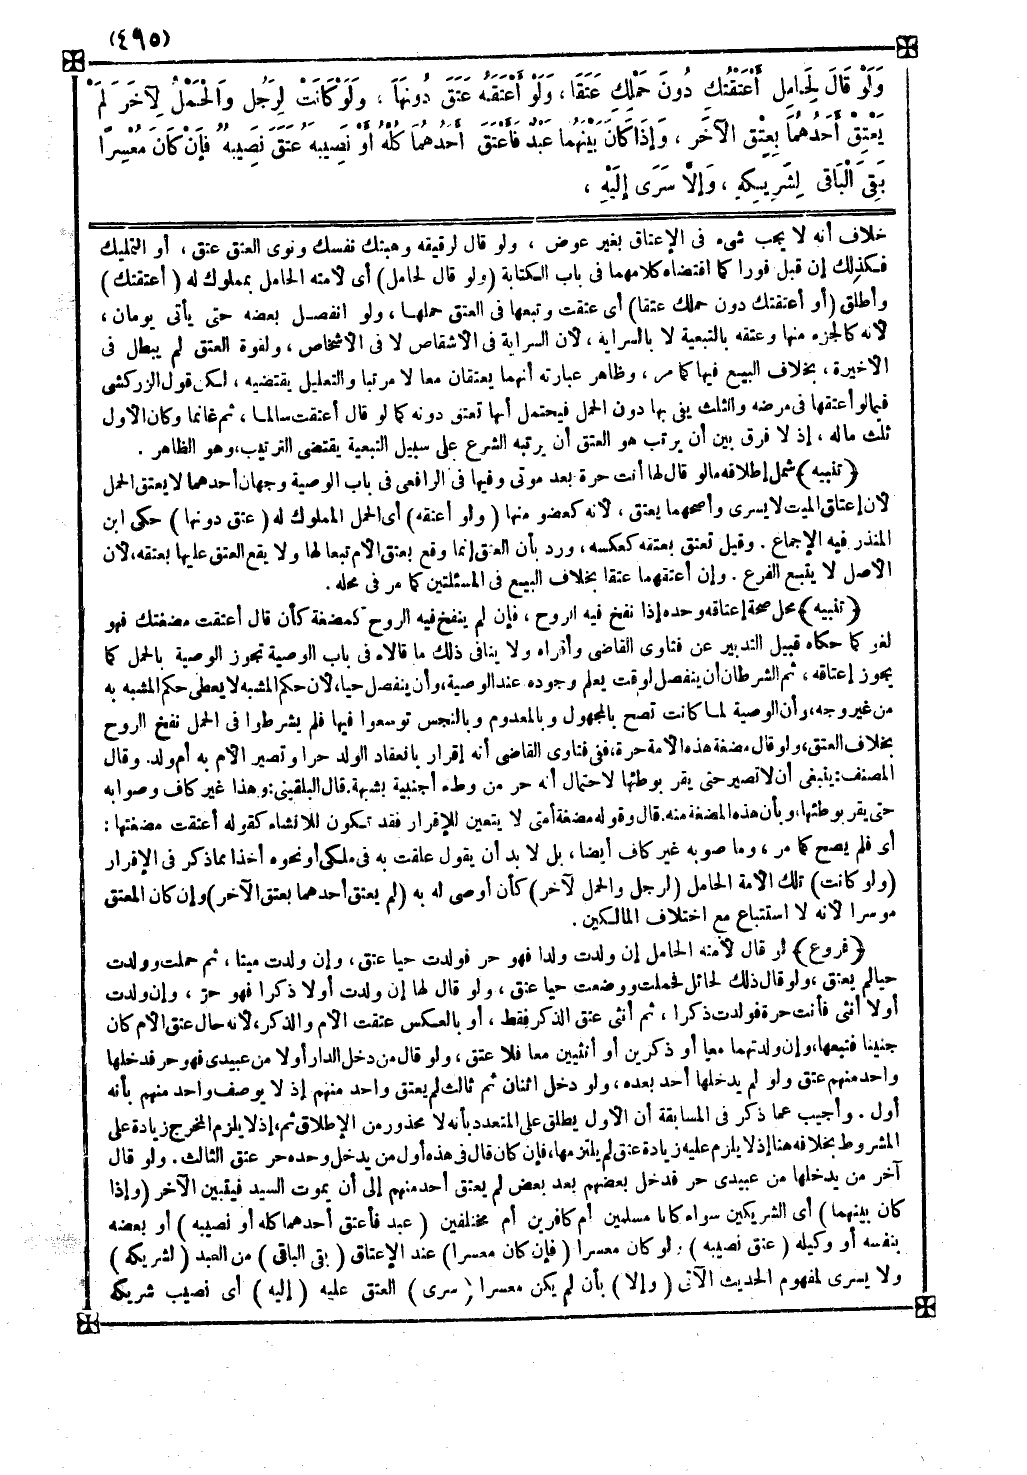 (٤٩٥)
وَلَوْ قَالَ لِحَامِلٍ أَعْتَقْتُكِ دُونَ حَمْلِكِ عَتَقَا ، وَلَوْ أَعْتَقَهُ عَتَقَ دُونَهَا ، وَلَوْ كَانَتْ لِرَجُلٍ وَالْحَمْلُ لِآخَرَ لَمْ
يَعْتِقْ أَحَدُهُمَا بِعِتْقِ الْآخَرِ ، وَإِذَا كَانَ بَيْنَهُمَا عَبْدٌ فَأَعْتَقَ أَحَدُهُمَا كُلَّهُ أَوْ نَصِيبَهُ عَتَقَ نَصِيبُهُ فَإِنْ كَانَ مُعْسِرًا
بَقِيَ الْبَاقِى لِشَرِيكِهِ ، وَإِلَّا سَرَى إِلَيْهِ ،
خلاف أنه لا يجب شىء فى الإعتاق بغير عوض ، ولو قال لرقيقه وهبتك نفسك ونوى العتق عتق ، أو التمليك
فكذلك إن قبل فورا كما اقتضاه كلامهما فى باب الكتابة (ولو قال لحامل) أى لأمته الحامل بمملوك له ( أعتقتك )
وأطلق (أو أعتقتك دون حملك عتقا) أى عتقت وتبعها فى العتق حملها ، ولو انفصل بعضه حتى يأتى يومان ،
لأنه كالجزء منها وعتقه بالتبعية لا بالسراية ، لأن السراية فى الأشقاص لا فى الأشخاص ، ولقوة العتق لم يبطل فى
الأخيرة ، بخلاف البيع فيها كما مر ، وظاهر عبارته أنهما يعتقان معا لا مرتبا والتعليل يقتضيه ، لكن قول الزركشى
فيما لو أعتقها فى مرضه والثلث يفى بها دون الحمل فيحتمل أنها تعتق دونه كما لو قال أعتقت سالما ، ثم غانما وكان الأول
ثلث ماله ، إذ لا فرق بين أن يرتب هو العتق أن يرتبه الشرع على سبيل التبعية يقتضى الترتيب ، وهو الظاهر .
﴿تنبيه﴾ شمل إطلاقه مالو قال لها أنت حرة بعد موتى وفيها فى الرافعى فى باب الوصية وجهان أحدهما لا يعتق الحمل
لأن إعتاق الميت لا يسرى وأصحهما يعتق ، لأنه كعضو منها ( ولو أعتقه ) أى الحمل المملوك له ( عتق دونها ) حكى ابن
المنذر فيه الإجماع . وقيل تعتق بعتقه كعكسه ، ورد بأن العتق إنما وقع بعتق الأم تبعا لها ولا يقع العتق عليها بعتقه ، لأن
الأصل لا يتبع الفرع . وإن أعتقهما عتقا بخلاف البيع فى المسئلتين كما مر فى محله .
﴿تنبيه﴾ محل صحة إعتاقه وحده إذا نفخ فيه الروح ، فإن لم ينفخ فيه الروح كمضغة كأن قال أعتقت مضغتك فهو
لغو كما حكاه قبيل التدبير عن فتاوى القاضى وأقراه ولا ينافى ذلك ما قالاه فى باب الوصية تجوز الوصية بالحمل كما
يجوز إعتاقه ، ثم الشرطان أن ينفصل لوقت يعلم وجوده عند الوصية ، وأن ينفصل حيا ، لأن حكم المشبه لا يعطى حكم المشبه به
من غير وجه ، وأن الوصية لما كانت تصح بالمجهول وبالمعدوم وبالنجس توسعوا فيها فلم يشرطوا فى الحمل نفخ الروح
بخلاف العتق ، ولو قال مضغة هذه الأمة حرة ، ففى فتاوى القاضى أنه إقرار بانعقاد الولد حرا وتصير الأم به أم ولد . وقال
المصنف: ينبغى أن لا تصير حتى يقر بوطئها لاحتمال أنه حر من وطء أجنبية بشبهة. قال البلقينى: وهذا غير كاف وصوابه
حتى يقر بوطئها ، وبأن هذه المضغة منه. قال وقوله مضغة أمتى لا يتعين للإقرار فقد تكون للانشاء كقوله أعتقت مضغتها :
أى فلم يصح كما مر ، وما صوبه غير كاف أيضا ، بل لا بد أن يقول علقت به فى ملكى أو نحوه أخذا بما ذكر فى الإقرار
(ولو كانت) تلك الأمة الحامل (لرجل والحمل لآخر) كأن أوصى له به (لم يعتق أحدهما بعتق الآخر) وإن كان المعتق
موسرا لأنه لا استتباع مع اختلاف المالكين .
﴿فروع﴾ لو قال لأمته الحامل إن ولدت ولدا فهو حر فولدت حيا عتق ، وإن ولدت ميتا ، ثم حملت وولدت
حيا لم يعتق ، ولو قال ذلك لحائل فحملت ووضعت حيا عتق ، ولو قال لها إن ولدت أولا ذكرا فهو حر ، وإن ولدت
أولا أنثى فأنت حرة فولدت ذكرا ، ثم أنثى عتق الذكر فقط ، أو بالعكس عتقت الأم والذكر ، لأنه حال عتق الأم كان
جنينا فتبعها ، وإن ولدتهما معا أو ذكرين أو أنثيين معا فلا عتق ، ولو قال من دخل الدار أولا من عبيدى فهو حر فدخلها
واحد منهم عتق ولو لم يدخلها أحد بعده ، ولو دخل اثنان ثم ثالث لم يعتق واحد منهم إذ لا يوصف واحد منهم بأنه
أول . وأجيب عما ذكر فى المسابقة أن الأول يطلق على المتعدد بأنه لا محذور من الإطلاق ثم ، إذ لا يلزم المخرج زيادة على
المشروط بخلافه هنا إذ لا يلزم عليه زيادة عتق لم يلتزمها ، فإن كان قال فى هذه أول من يدخل وحده حر عتق الثالث . ولو قال
آخر من يدخلها من عبيدى حر فدخل بعضهم بعد بعض لم يعتق أحد منهم إلى أن يموت السيد فيتبين الآخر (وإذا
كان بينهما) أى الشريكين سواء كانا مسلمين أم كافرين أم مختلفين ( عبد فأعتق أحدهما كله أو نصيبه ) أو بعضه
بنفسه أو وكيله ( عتق نصيبه ) ، لو كان معسرا (فإن كان معسرا) عند الإعتاق ( بقى الباقى ) من العبد ( لشريكه )
ولا يسرى لمفهوم الحديث الآتى ( وإلا ) بأن لم يكن معسرا ( سرى ) العتق عليه ( إليه ) أى نصيب شريكه